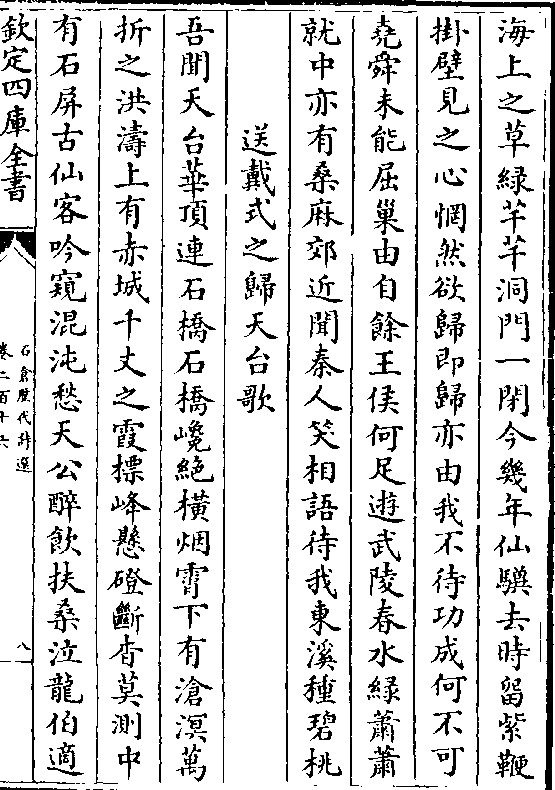 海上之草綠芊芊洞門一閉今幾年仙驥去時留紫鞭
掛壁見之心惘然欲歸即歸亦由我不待功成何不可
堯舜未能屈巢由自餘王侯何足遊武陵春水綠蕭蕭
就中亦有桑麻郊近聞秦人笑相語待我東溪種碧桃
送戴式之歸天台歌
吾聞天台華頂連石橋石橋巉絕橫烟霄下有滄溟萬
折之洪濤上有赤城千丈之霞標峰懸磴斷杳莫測中
有石屏古仙客吟窺混沌愁天公醉飲扶桑泣龍伯適
欽定四庫全書
石倉歷代詩選
卷二百十六
八